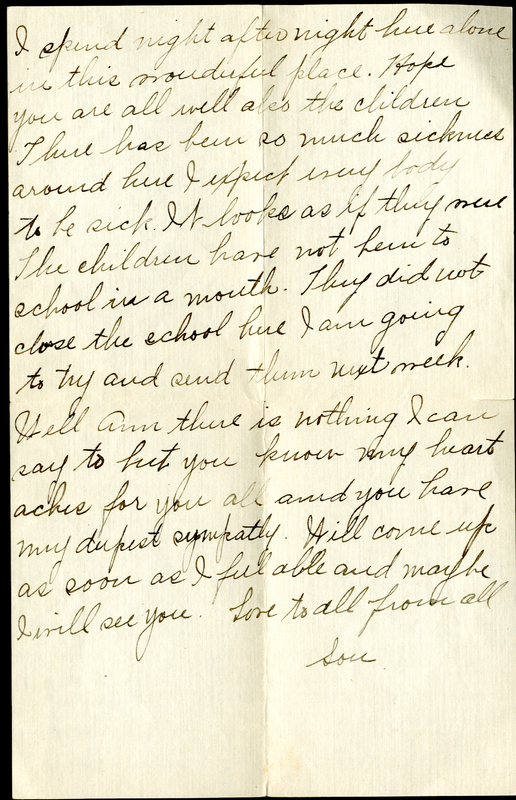 I spend night after night here alone
in this wonderful place. Hope
you are all well also the children
There has been so much sickness
around here I expect every body
to be sick. It looks as if they were
The children have not been to
school in a month. They did not
close the school here I am going
to try and send them next week.
Well Ann there is nothing I can
say to but you know my heart
aches for you all and you have
my deepest sympathy. Will come up
as soon as I feel able and maybe
I will see you. Love to all from all
Lou